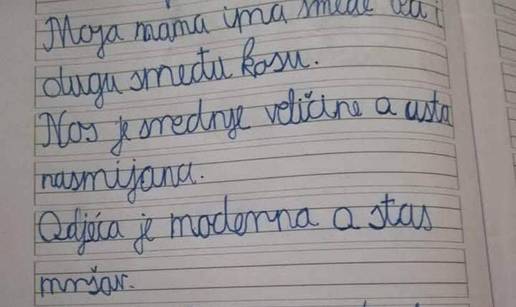 Moja mama ima smeđe oči i
dugu smeđu kosu.
Nos je srednje veličine a usta
nasmijana.
Odjeća je moderna a stas
mršav.